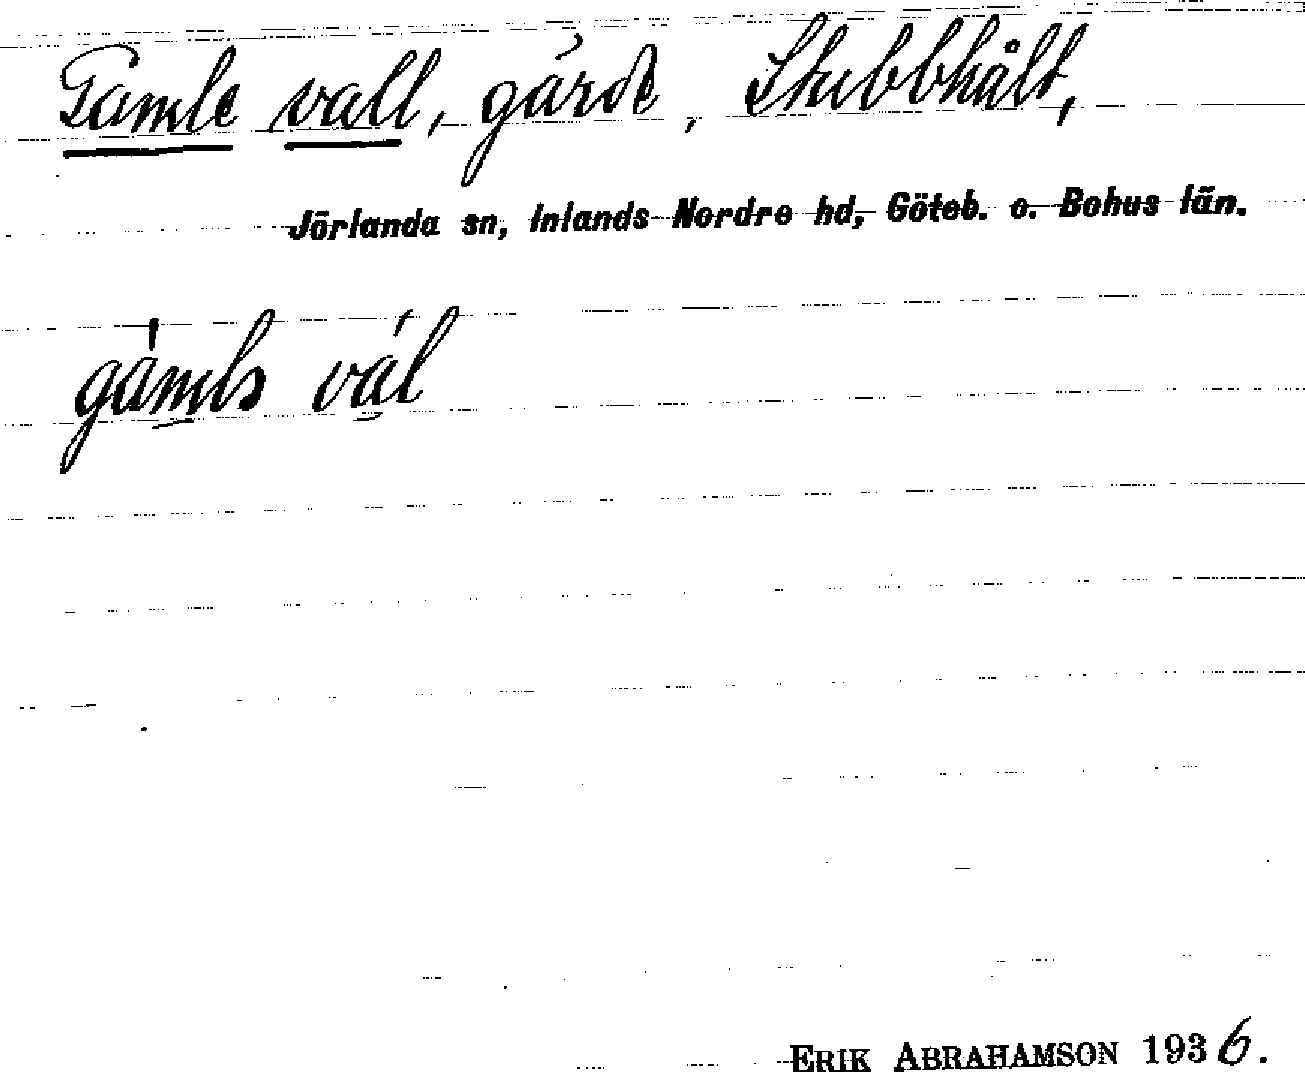 Gamle vall, gärde, Stubbhält,
Jörlanda sn, Inlands Nordre hd, Göteb. o. Bohus län.
vál
ERIK ABRAHAMSON 1936.